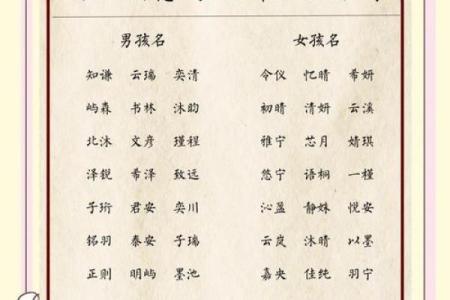 男孩名 女孩名
知谦 云瑞 奕清 令仪 忆晴 希妍
屿森 书林 沐昀 初晴 清妍 云溪
北沐 文彦 瑾程 雅宁 芯月 婧琪
泽锐 希泽 致远 悠宁 语桐 一槿
子珩 君安 奕川 沁盈 静姝 悦安
铭羽 泰安 子瑞 云岚 沐晴 以墨
正则 明屿 墨池 嘉央 佳纯 羽宁